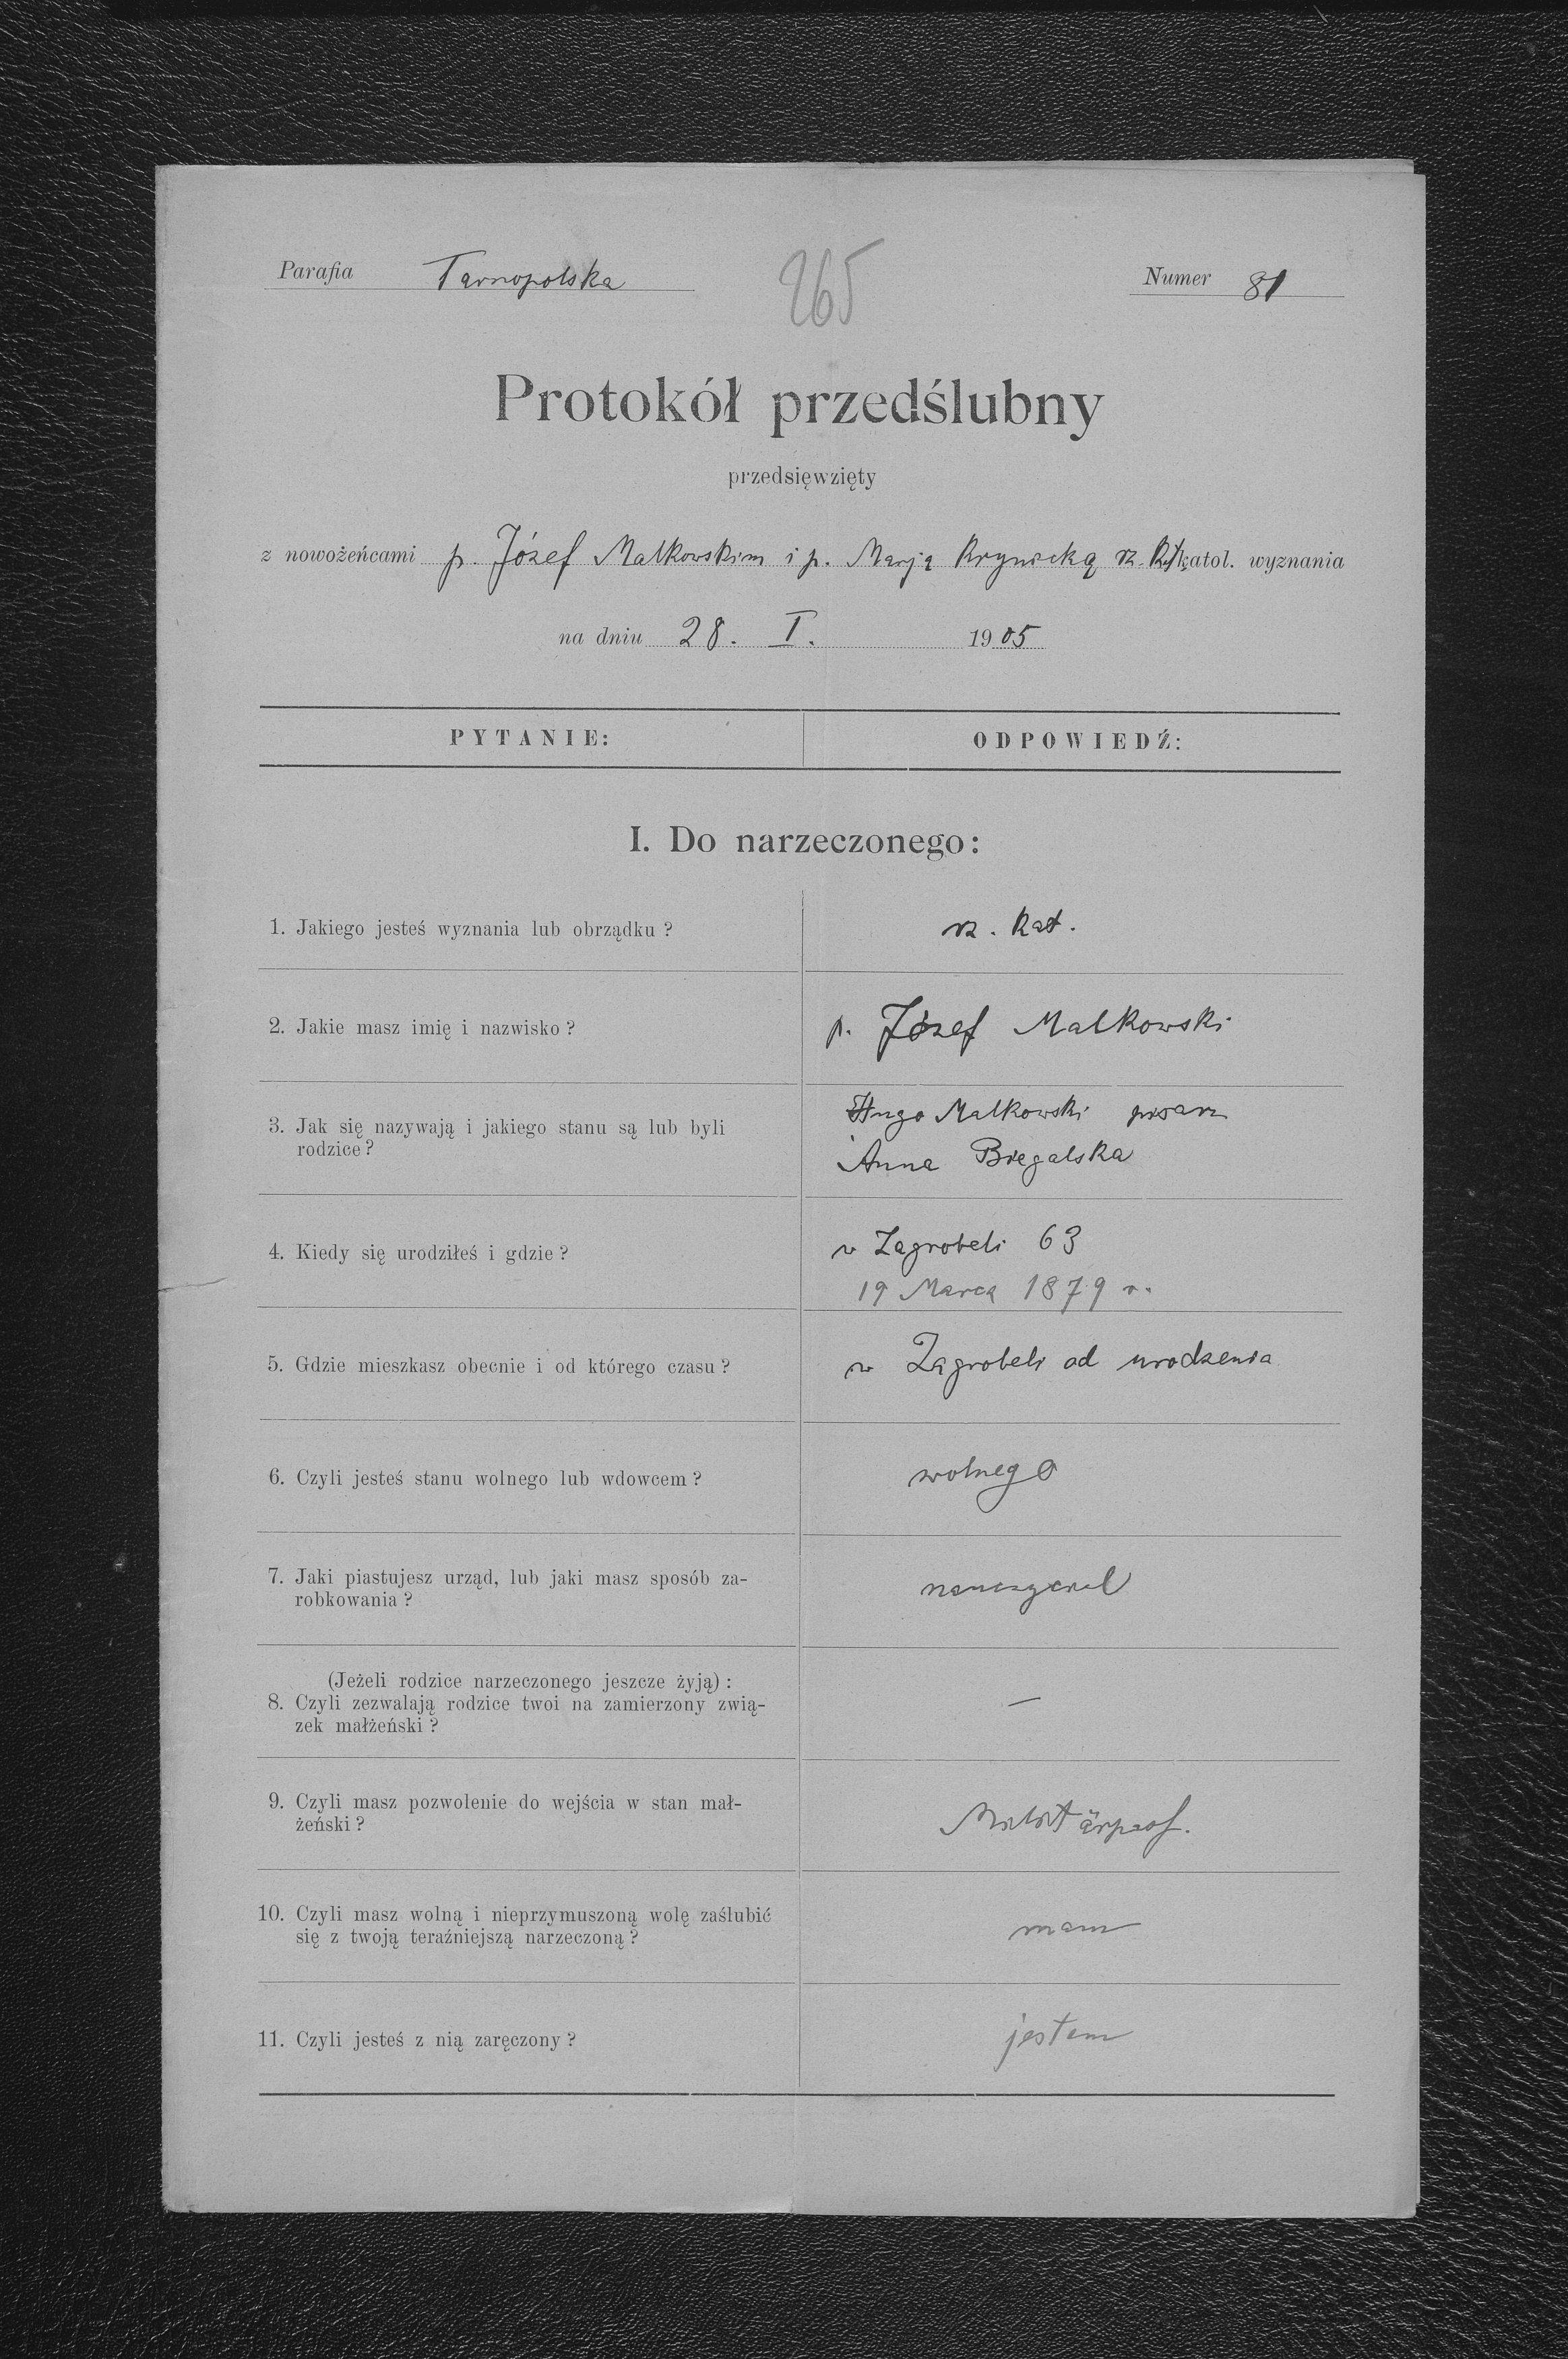 Parafia Tarnopolska
265
Numer 81
Protokół przedślubny
przedsięwzięty
z nowożeńcami p. Józef Malkowskim i p. Marją Krynicką rz. katol. wyznania
na dniu 28. I. 1905
PYTANIE:
ODPOWIEDŹ:
I. Do narzeczonego:
1. Jakiego jesteś wyznania lub obrządku?
rz. kat.
2. Jakie masz imię i nazwisko?
p. Józef Malkowski
3. Jak się nazywają i jakiego stanu są lub byli
rodzice?
Hugo Malkowski pisarz
Anna Biegalska
4. Kiedy się urodziłeś i gdzie?
w Zagrobeli 63
19 Marca 1879 r.
5. Gdzie mieszkasz obecnie i od którego czasu?
w Zagrobeli od urodzenia
6. Czyli jesteś stanu wolnego lub wdowcem?
wolnego
7. Jaki piastujesz urząd, lub jaki masz sposób za-
robkowania?
nauczyciel
(Jeżeli rodzice narzeczonego jeszcze żyją):
8. Czyli zezwalają rodzice twoi na zamierzony zwią-
zek małżeński?
—
9. Czyli masz pozwolenie do wejścia w stan mał-
żeński?
Militärpass.
10. Czyli masz wolną i nieprzymuszoną wolę zaślubić
się z twoją teraźniejszą narzeczoną?
mam
11. Czyli jesteś z nią zaręczony?
jestem